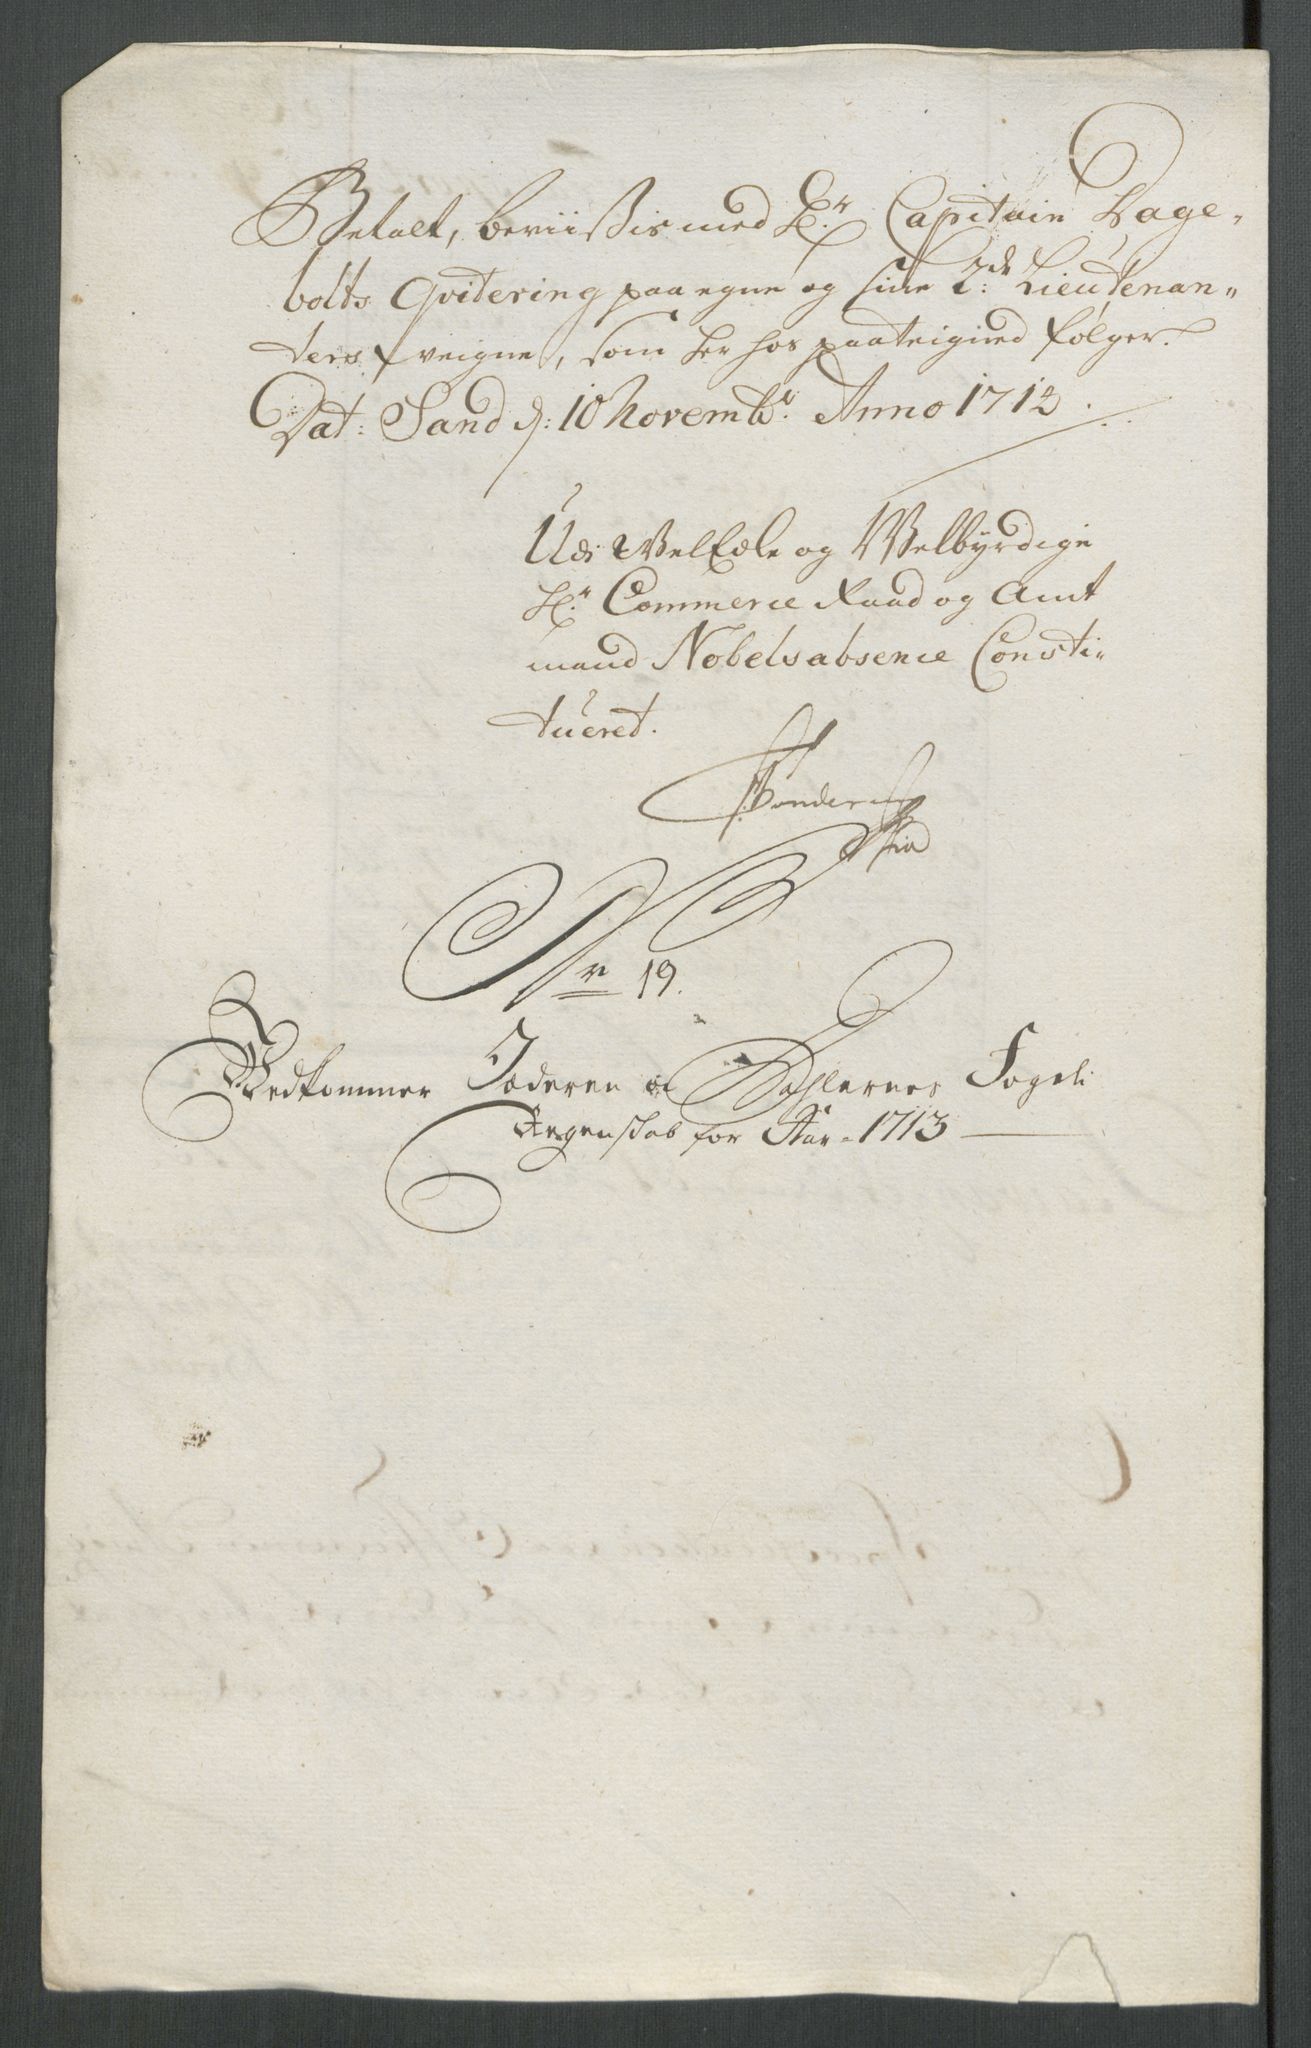 Betalt, beviisis med Hr. Capitain Dage-
bolts Qvitering paa egne og sine 2de Lieutenan-
ters veigne, som her hos paateigned følger.
Dat: Sand d: 10 Novembr. Anno 1713.
Udi Velædle og Welbyrdige
Hr. Commerce Raad og Amt
mand Nobels absence Consti-
tueret.
No 19.
Vedkommer Jæderen og Dahlernes Fogderi
Regenskab for Aar 1713